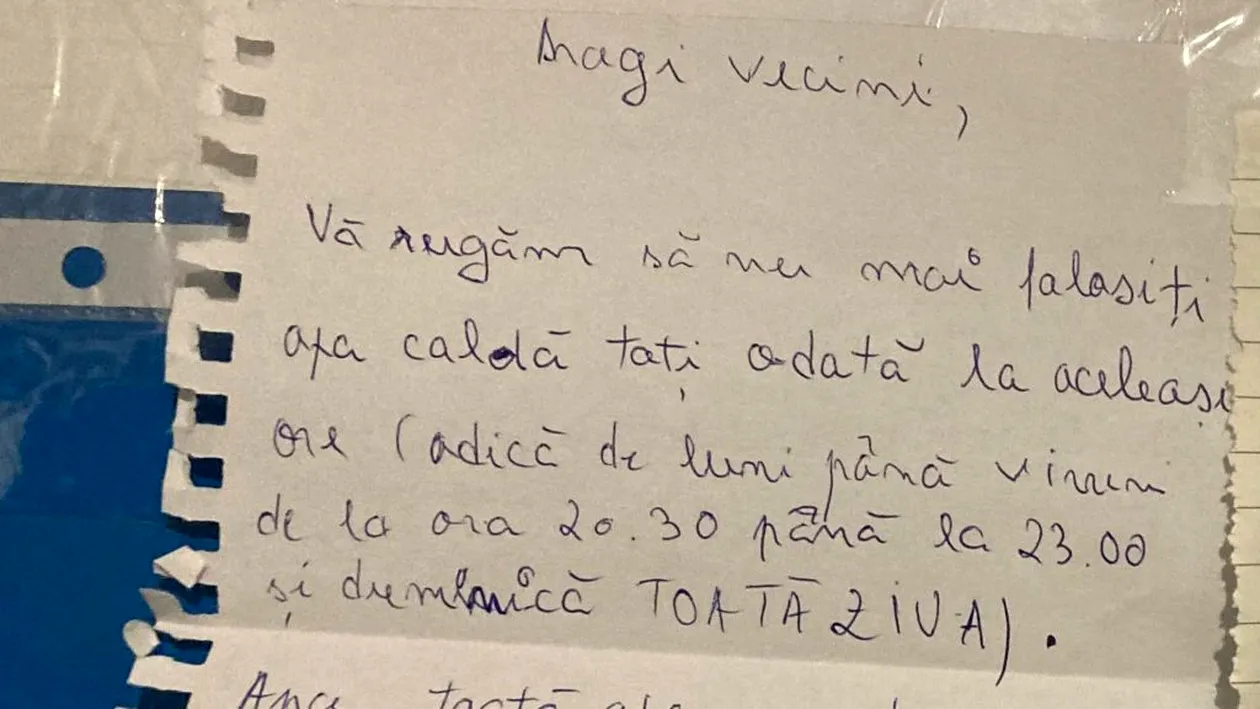 Dragi vecini,
Vă rugăm să nu mai folosiți
apa caldă toți odată la aceleași
ore (adică de luni până vineri
de la ora 20.30 până la 23.00
și duminică TOATĂ ZIUA).
toată